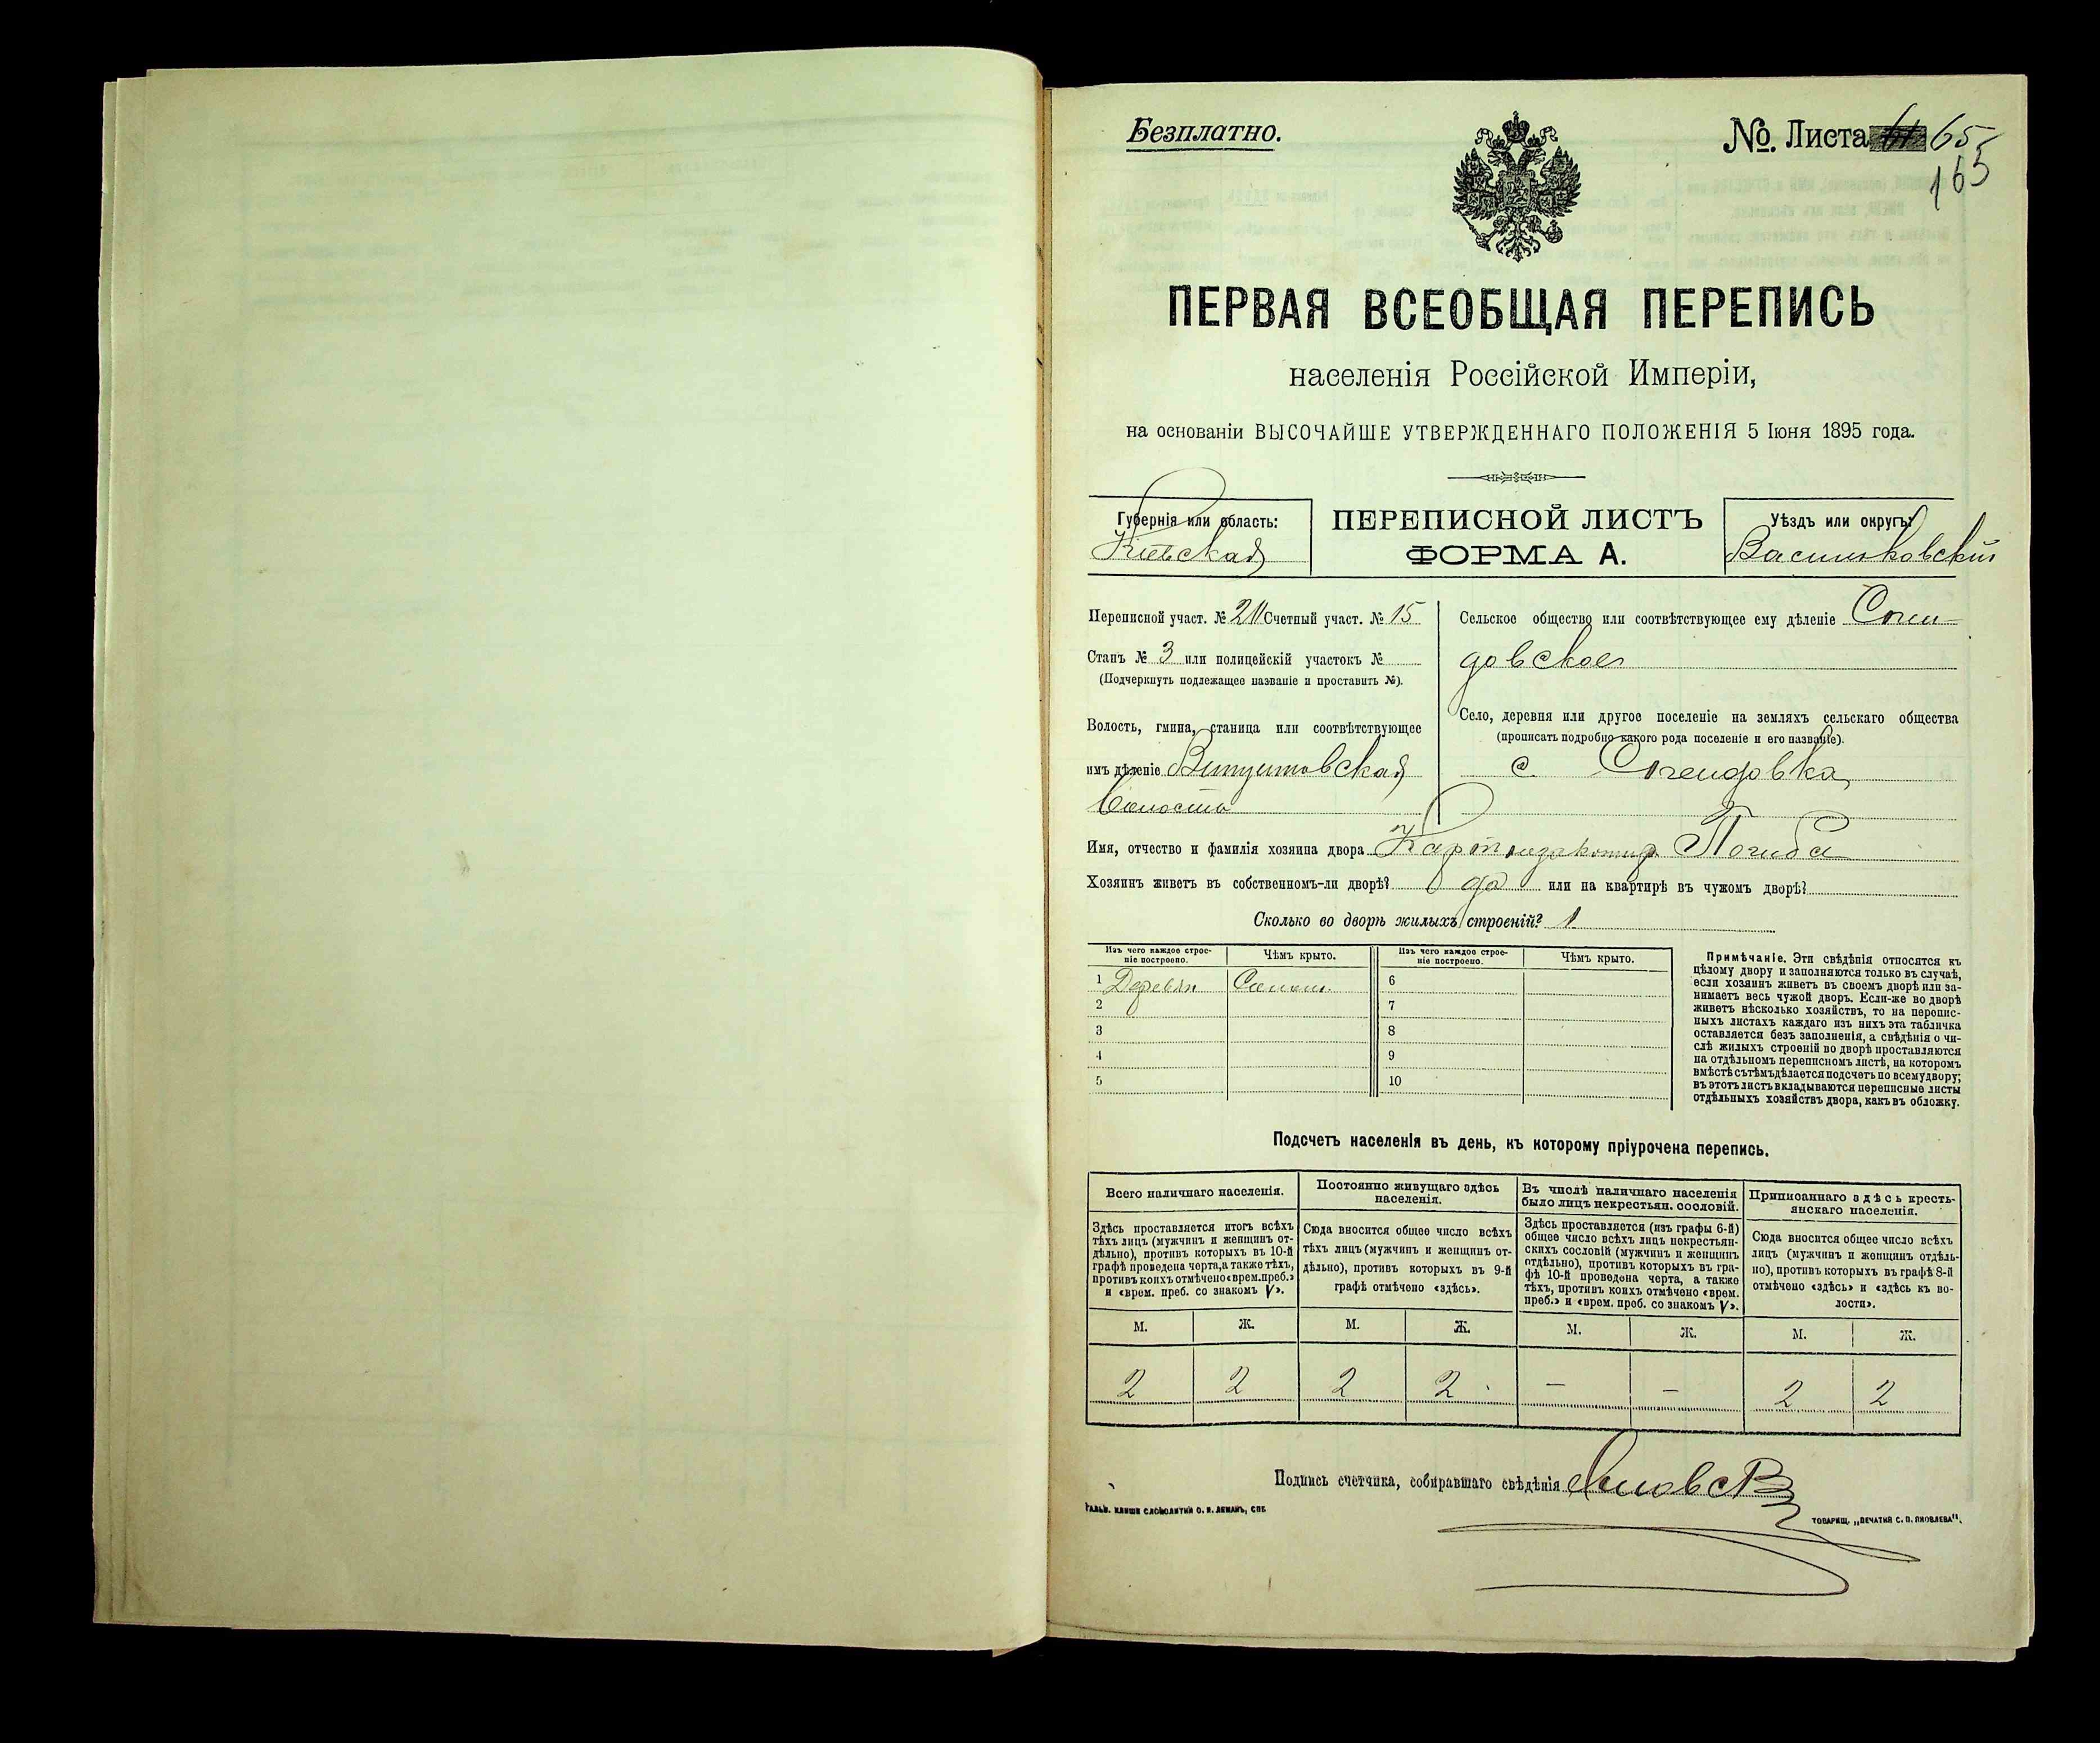 Безплатно.
№. Листа 65
165
ПЕРВАЯ ВСЕОБЩАЯ ПЕРЕПИСЬ
населенія Россійской Имперіи,
на основаніи ВЫСОЧАЙШЕ УТВЕРЖДЕННАГО ПОЛОЖЕНІЯ 5 Іюня 1895 года.
Губернія или область:
Кіевская
ПЕРЕПИСНОЙ ЛИСТЪ
ФОРМА А.
Уѣздъ или округъ:
Васильковскій
Переписной участ. № Счетный участ. № 15
Станъ № 3 или полицейскій участокъ №
(Подчеркнуть подлежащее названіе и проставить №).
Волость, гмина, станица или соотвѣтствующее
имъ дѣленіе
Волость
Сельское общество или соотвѣтствующее ему дѣленіе
довское
Село, деревня или другое поселеніе на земляхъ сельскаго общества
(прописать подробно какого рода поселеніе и его названіе).
с.
Имя, отчество и фамилія хозяина двора Погиба
Хозяинъ живетъ въ собственномъ-ли дворѣ? да или на квартирѣ въ чужомъ дворѣ?
Сколько во дворѣ жилыхъ строеній? 1
Изъ чего каждое строе-
ніе построено.
Чѣмъ крыто.
Изъ чего каждое строе-
ніе построено.
Чѣмъ крыто.
1 Деревян Солом.
2
3
4
5
6
7
8
9
10
Примѣчаніе. Эти свѣдѣнія относятся къ
цѣлому двору и заполняются только въ случаѣ,
если хозяинъ живетъ въ своемъ дворѣ или за-
нимаетъ весь чужой дворъ. Если-же во дворѣ
живетъ нѣсколько хозяйствъ, то на перепис-
ныхъ листахъ каждаго изъ нихъ эта табличка
оставляется безъ заполненія, а свѣдѣнія о чи-
слѣ жилыхъ строеній во дворѣ проставляются
на отдѣльномъ переписномъ листѣ, на которомъ
вмѣстѣ съ тѣмъ дѣлается подсчетъ по всему двору;
въ этотъ листъ вкладываются переписные листы
отдѣльныхъ хозяйствъ двора, какъ въ обложку.
Подсчетъ населенія въ день, къ которому пріурочена перепись.
Всего наличнаго населенія.
Здѣсь проставляется итогъ всѣхъ
тѣхъ лицъ (мужчинъ и женщинъ от-
дѣльно), противъ которыхъ въ 10-й
графѣ проведена черта, а также тѣхъ,
противъ коихъ отмѣчено «врем. преб.»
и «врем. преб. со знакомъ V».
Постоянно живущаго здѣсь
населенія.
Сюда вносится общее число всѣхъ
тѣхъ лицъ (мужчинъ и женщинъ от-
дѣльно), противъ которыхъ въ 9-й
графѣ отмѣчено «здѣсь».
Въ числѣ наличнаго населенія
было лицъ некрестьян. сословій.
Здѣсь проставляется (изъ графы 6-й)
общее число всѣхъ лицъ некрестьян-
скихъ сословій (мужчинъ и женщинъ
отдѣльно), противъ которыхъ въ гра-
фѣ 10-й проведена черта, а также
тѣхъ, противъ коихъ отмѣчено «врем.
преб.» и «врем. преб. со знакомъ V».
Приписаннаго здѣсь кресть-
янскаго населенія.
Сюда вносится общее число всѣхъ
лицъ (мужчинъ и женщинъ отдѣль-
но), противъ которыхъ въ графѣ 8-й
отмѣчено «здѣсь» и «здѣсь къ во-
лости».
М. Ж. М. Ж. М. Ж. М. Ж.
2 2 2 2 — — 2 2
Подпись счетчика, собиравшаго свѣдѣнія
ГАЛЬВ. КЛИШЕ СЛОВОЛИТНИ О. И. ЛЕМАНЪ, СПБ.
ТОВАРИЩ. „ПЕЧАТНЯ С. П. ЯКОВЛЕВА".